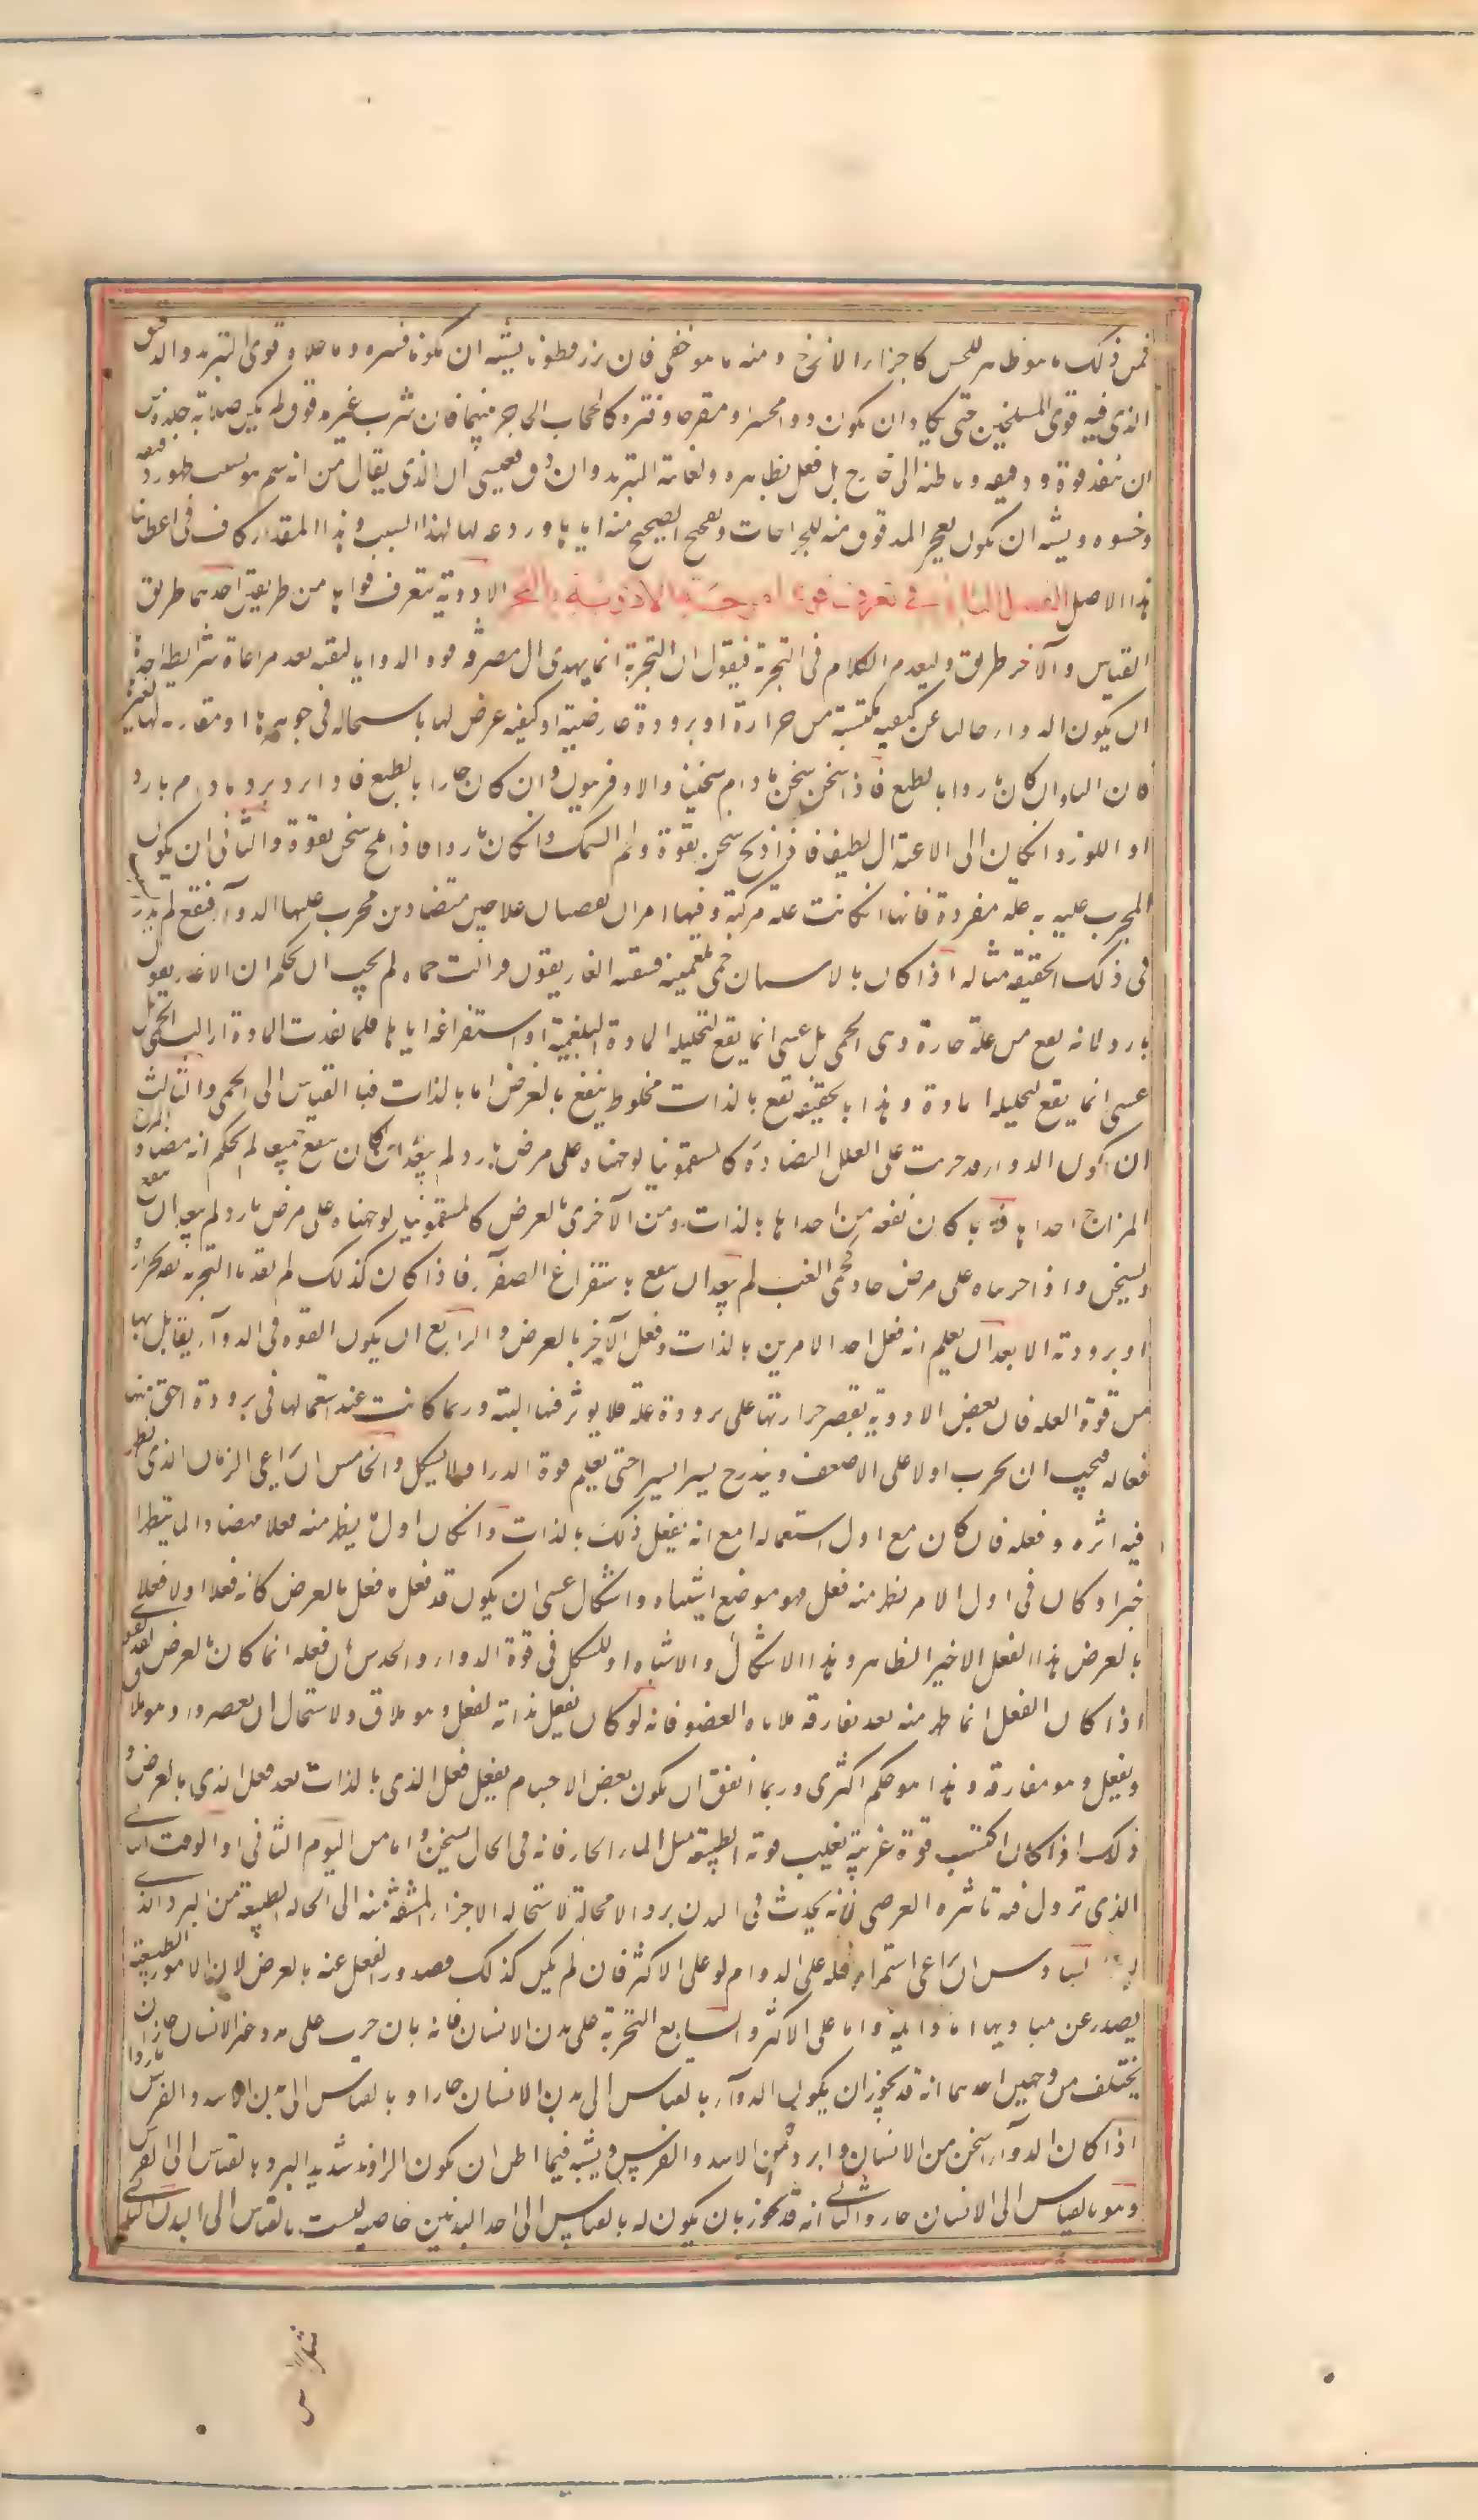 فمن ذلك ما هو ظاهر للحس كاجزاء الاترج ومنه ما هو خفى فان بزر قطونا يشبه ان يكون قشره وما علاه قوى التبريد والدقيق
الذى فيه قوى التسخين حتى يكاد ان يكون دواء محمرا ومقرحا وقشره كالحجاب الحاجز بينهما فان شرب غير مدقوق لم يمكن صلابة جلده من
ان ينفذ قوة دقيقه وباطنه الى خارج بل فعل بظاهره ولعابه التبريد وان دق فعسى ان الذى يقال من انه سم هو بسبب ظهور دقيقه
وحشوه ويشبه ان يكون تفجير المدقوق منه للجراحات وتفجيج الصحيح منه اياها وردعه لها لهذا السبب وهذا المقدار كاف فى اعطائنا
هذا الاصل الفصل الثانى فى تعرف قوى امزجة الادوية بالتجربة الادوية يتعرف قواها من طريقين احدهما طريق
القياس والآخر طريق وليقدم الكلام فى التجربة فيقول ان التجربة انما يهدى الى معرفة قوة الدواء بالثقة بعد مراعاة شرايط احدها
ان يكون الدواء خاليا عن كيفية مكتسبة من حرارة او برودة عارضية او كيفية عرض لها باستحالة فى جوهرها او مقارنة لها لغيرها
فان الماء وان كان باردا بالطبع فاذا سخن سخن ما دام سخينا والافرفيون وان كان حارا بالطبع فاذا برد برد ما دام باردا
او اللوز وان كان الى الاعتدال لطيفا فاذا زنخ سخن بقوة ولحم السمك وان كان باردا فاذا ملح سخن بقوة والثانى ان يكون
المجرب عليه به علة مفردة فانها ان كانت علة مركبة وفيها امران يقتضيان علاجين متضادين فجرب عليهما الدواء فنفع لم يدر السر
فى ذلك بالحقيقة مثاله اذا كان بالانسان حمى بلغمية فسقيناه الغاريقون فزالت حماه لم يجب ان يحكم ان الغاريقون
بارد لانه نفع من علة حارة وهى الحمى بل عسى انما نفع لتحليله المادة البلغمية او استفراغه اياها فلما نفدت المادة زالت الحمى بل
عسى انما نفع لتحليله المادة وهذا بالحقيقة نفع بالذات مخلوط بنفع بالعرض اما بالذات فبالقياس الى الحمى والثالث
ان يكون الدواء قد جرب على العلل المتضادة كالسقمونيا لو جربناه على مرض بارد لم يبعد ان كان ينفع منهما لم يحكم انه مضاد المزاج
المزاج احداهما فربما كان نفعه من احداهما بالذات ومن الآخرى بالعرض كالسقمونيا لو جربناه على مرض بارد لم يبعد ان ينفع
ويسخن واذا جربناه على مرض حاد كحمى الغب لم يبعد ان ينفع باستفراغ الصفراء فاذا كان كذلك لم يفدنا التجربة ثقة بحرارته
او برودته الا بعد ان يعلم انه فعل احد الامرين بالذات وفعل الآخر بالعرض والرابع ان يكون القوة فى الدواء يقابل بها
من قوة العلة فان بعض الادوية يقصر حرارتها على برودة علة فلا يوثر فيها البتة وربما كانت عند استعمالها فى برودة اخف منها
فعالة فيجب ان يجرب اولا على الاضعف ويتدرج يسيرا يسيرا حتى يعلم قوة الدواء ولا يشكل والخامس ان يراعى الزمان الذى يظهر
فيه اثره وفعله فان كان مع اول استعماله اقنع انه يفعل ذلك بالذات وان كان اول ما يظهر منه فعلا مضادا لما يظهر
اخيرا وكان فى اول الامر لا يظهر منه فعل فهو موضع اشتباه واشكال عسى ان يكون قد فعل ما فعل بالعرض كانه فعل اولا فعلا
بالعرض هذا الفعل الاخير الظاهر وهذا الاشكال والاشتباه او للشكل فى قوة الدواء والحدس ان فعله انما كان بالعرض قد يقوى
اذا كان الفعل انما ظهر منه بعد مفارقة ملاقاة العضو فانه لو كان يفعل بذاته لفعل وهو ملاق ولاستحال ان يقصر وهو ملاق
ويفعل وهو مفارق وهذا هو حكم اكثرى وربما اتفق ان يكون بعض الاجسام يفعل فعل الذى بالذات بعد فعل الذى بالعرض و
ذلك اذا كان اكتسب قوة غريبة تغلب قوته الطبيعية مثل الماء الحار فانه فى الحال يسخن واما من اليوم الثانى او الوقت الثانى
الذى تزول فيه تاثيره العرضى فانه يحدث فى البدن بردا لا محالة لاستحالة الاجزاء المتشبثة منه الى الحالة الطبيعية من البرد الذى
السادس ان يراعى استمرار فعله على الدوام او على الاكثر فان لم يكن كذلك فصدور الفعل عنه بالعرض لان الامور الطبيعية
يصدر عن مباديها اما دائمة واما على الاكثر والسابع التجربة على بدن الانسان فانه بان جرب على بدن غير الانسان جاز ان
يختلف من وجهين احدهما انه قد يجوز ان يكون الدواء بالقياس الى بدن الانسان حارا وبالقياس الى بدن الاسد والفرس باردا
اذا كان الدواء اسخن من الانسان وابرد من الاسد والفرس ويشبه فيما اظن ان يكون الراوند شديد البرد بالقياس الى الفرس
وهو بالقياس الى الانسان حار والثانى انه قد يجوز بان يكون له بالقياس الى احد البدنين خاصية ليست بالقياس الى البدن الثانى